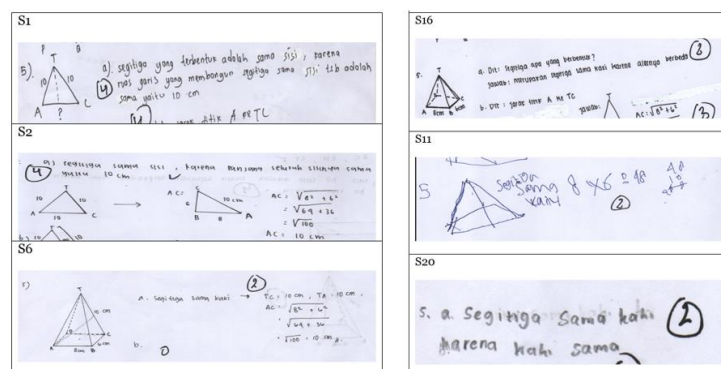 S1
T
5).
10 10
A ? C
a). segitiga yang terbentuk adalah sama sisi, karena
ruas garis yang membangun segitiga sama sisi tsb adalah
sama yaitu 10 cm
titik A ke TC
S2
a) segitiga sama sisi, karena panjang seluruh sisinya sama
yaitu 10 cm
T
10 10
A 10 C
AC =
C
6 10 cm
B 8 A
AC = √8² + 6²
= √64 + 36
= √100
AC = 10 cm
S6
5)
T
A 8cm B 6cm C
a. Segitiga sama kaki →
2
TC = 10 cm, TA = 10 cm,
AC = √8² + 6²
= √64 + 36
= √100 = 10 cm
b.
0
S16
5.
T
A 8cm B 6cm C
a. Dit: segitiga apa yang terbentuk?
Jawab: merupakan segitiga sama kaki karena alasnya berbeda
3
b. Dit: jarak titik A ke TC
Jawab:
AC = √8² + 6²
S11
5
Segitiga
sama
kaki
8 x 6 = 48
2
S20
5. a. Segitiga sama kaki
karena kaki sama
2